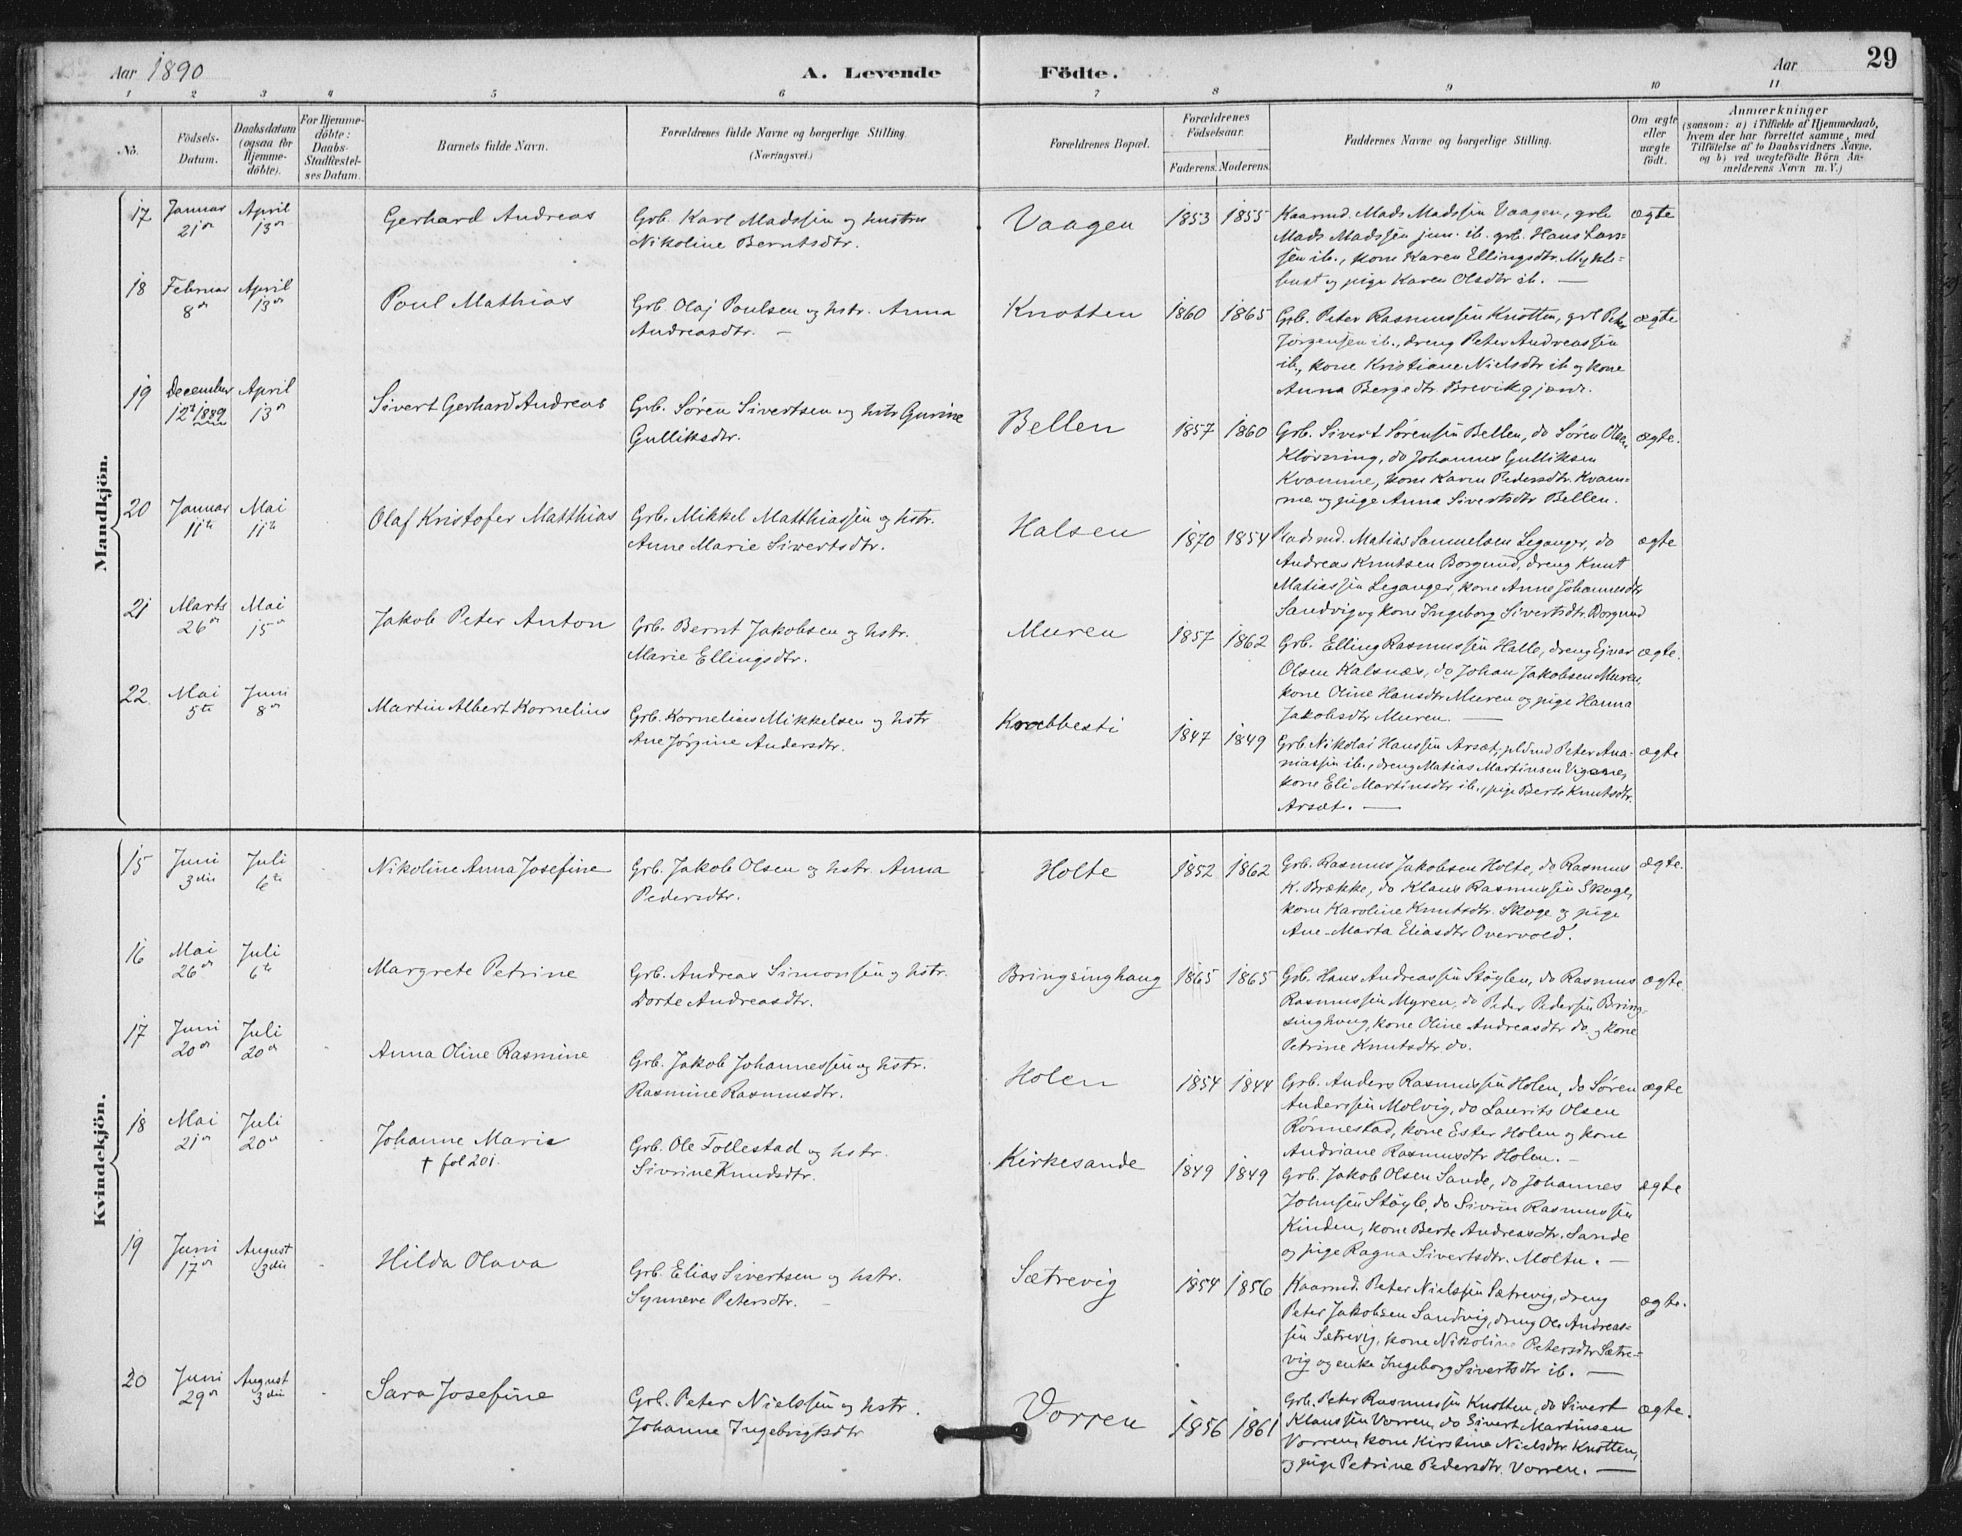 Aar 1890
A. Levende Födte.
Aar
29
1 2 3 4 5 6 7 8 9 10 11
No.
Födsels-Datum.
Daabsdatum (ogsaa for Hjemmedöbte).
For Hjemmedöbte: Daabs-Stadfæstelses Datum.
Barnets fulde Navn.
Forældrenes fulde Navne og borgerlige Stilling.
(Næringsvei.)
Forældrenes Bopæl.
Forældrenes Födselsaar.
Faderens. Moderens.
Faddernes Navne og borgerlige Stilling.
Om ægte eller uægte födt.
Anmærkninger
(saasom: a) i Tilfælde af Hjemmedaab,
hvem der har forrettet samme, med
Tilföielse af to Daabsvidners Navne.
og b) ved uægtefödte Börn An-
melderens Navn m. V.)
Mandkjön.
17 Januar 21de April 13de Gerhard Andreas
Grb. Karl Madssen og hustru
Nikoline Berntsdtr.
Vaagen 1853 1855
Kaarmd. Mads Madssen Vaagen, grb.
Mads Madssen jun. ib. grb. Hans Lars-
sen ib., kone Karen Ellingsdtr. Mykle-
bust og pige Karen Olsdtr ib. —
ægte
18 Februar 8de April 13de Poul Mathias
Grb. Olaj Poulsen og hstr. Anna
Andreasdtr. —
Knotten 1860 1865
Grb. Peter Rasmussen Knotten, grb Peter
Jørgensen ib., dreng Peter Andreassen
ib., kone Kristiane Nielsdtr ib og kone
Anna Bergedtr. Brevikgjerde.
ægte
19 December 12te 1889 April 13de Sivert Gerhard Andreas
Grb. Søren Sivertsen og hstr Gurine
Gulliksdtr.
Bellen 1857 1860
Grb. Sivert Sørensen Bellen, do Søren Olsen
Kløvning, do Johannes Gulliksen
Kvamme, kone Karen Pedersdtr. Kvam-
me og pige Anna Sivertsdtr Bellen.
ægte.
20 Januar 11te Mai 11te Olaf Kristofer Matthias
Grb. Mikkel Matthiassen og hstr.
Anne Marie Sivertsdtr.
Halsen 1870 1854
Matias Samuelsen Leganger, do
Andreas Knutsen Borgund, dreng Knut
Matiassen Leganger, kone Anne Johannesdtr
Sandvig og kone Ingeborg Sivertsdtr. Borgund
ægte
21 Marts 26de Mai 15de Jakob Peter Anton
Grb. Bernt Jakobsen og hstr.
Marie Ellingsdtr.
Muren 1857 1862
Grb. Elling Rasmussen Halle, dreng Ejvar
Olsen Kalsnæs, do Johan Jakobsen Muren,
kone Oline Hansdtr Muren og pige Hanna
Jakobsdtr Muren. —
ægte.
22. Mai 5te Juni 8de Martin Albert Kornelius
Grb. Kornelius Mikkelsen og hstr
Ane Jørgine Andersdtr.
Krabbesti 1847 1849
Grb. Nikolai Hanssen Arsæt, Peter Ana-
niassen ib., dreng Matias Martinsen Vigane,
kone Eli Martinsdtr ib., pige Berte Knutsdtr.
Arsæt. —
ægte
Kvindekjön.
15 Juni 3die Juli 6te Nikoline Anna Josefine
Grb. Jakob Olsen og hstr Anna
Pedersdtr.
Holte 1852 1862
Grb. Rasmus Jakobsen Holte, do Rasmus
K. Brække, do Klaus Rasmussen Skoge,
kone Karoline Knutsdtr. Skoge og pige
Ane-Marta Eliasdtr Overvold.
ægte.
16 Mai 26de Juli 6te Margrete Petrine
Grb. Andreas Simonsen og hstr.
Dorte Andreasdtr.
Bringsinghaug 1865 1865
Grb. Hans Andreassen Støylen, do Rasmus
Rasmussen Myren, do Peder Pedersen Bring-
singhaug, kone Oline Andreasdtr do. og kone
Petrine Knutsdtr do.
ægte
17 Juni 20de Juli 20de Anna Oline Rasmine
Grb. Jakob Johannessen og hstr.
Rasmine Rasmusdtr.
Holen 1854 1844
Grb. Anders Rasmussen Holen, do Søren
Anderssen Molvig, do Laurits Olsen
Rønnestad, kone Ester Holen og kone
Andriane Rasmusdtr Holen. —
ægte
18 Mai 21de Juli 20de Johanne Marie
† fol 201.
Grb. Ole Tollestad og hstr.
Sivrine Knudsdtr.
Kirkesande 1849 1849
Grb. Jakob Olsen Sande, do Johannes
Johnsen Støyle, do Sivrin Rasmussen
Kinden, kone Berte Andreasdtr. Sande
og pige Ragna Sivertsdtr. Moltu. —
ægte
19 Juni 17de August 3die Hilda Olava
Grb. Elias Sivertsen og hstr.
Synneve Petersdtr. —
Sætrevig 1854 1856
Kaarmd. Peter Nielssen Sætrevig, dreng
Peter Jakobsen Sandvig, dreng Ole Andreas-
sen Sætrevig, kone Nikoline Petersdtr Sætre-
vig og enke Ingeborg Sivertsdtr ib. —
ægte.
20 Juni 29de August 3die Sara Josefine
Grb. Peter Nielssen og hstr.
Johanne Ingebrigtsdtr
Vorren 1856 1861
Grb. Peter Rasmussen Knotten, do Sivert
Klaussen Vorren, do Sivert Martinsen
Vorren, kone Kirstine Nielsdtr Knotten,
og pige Petrine Pedersdtr. Vorren. —
ægte.